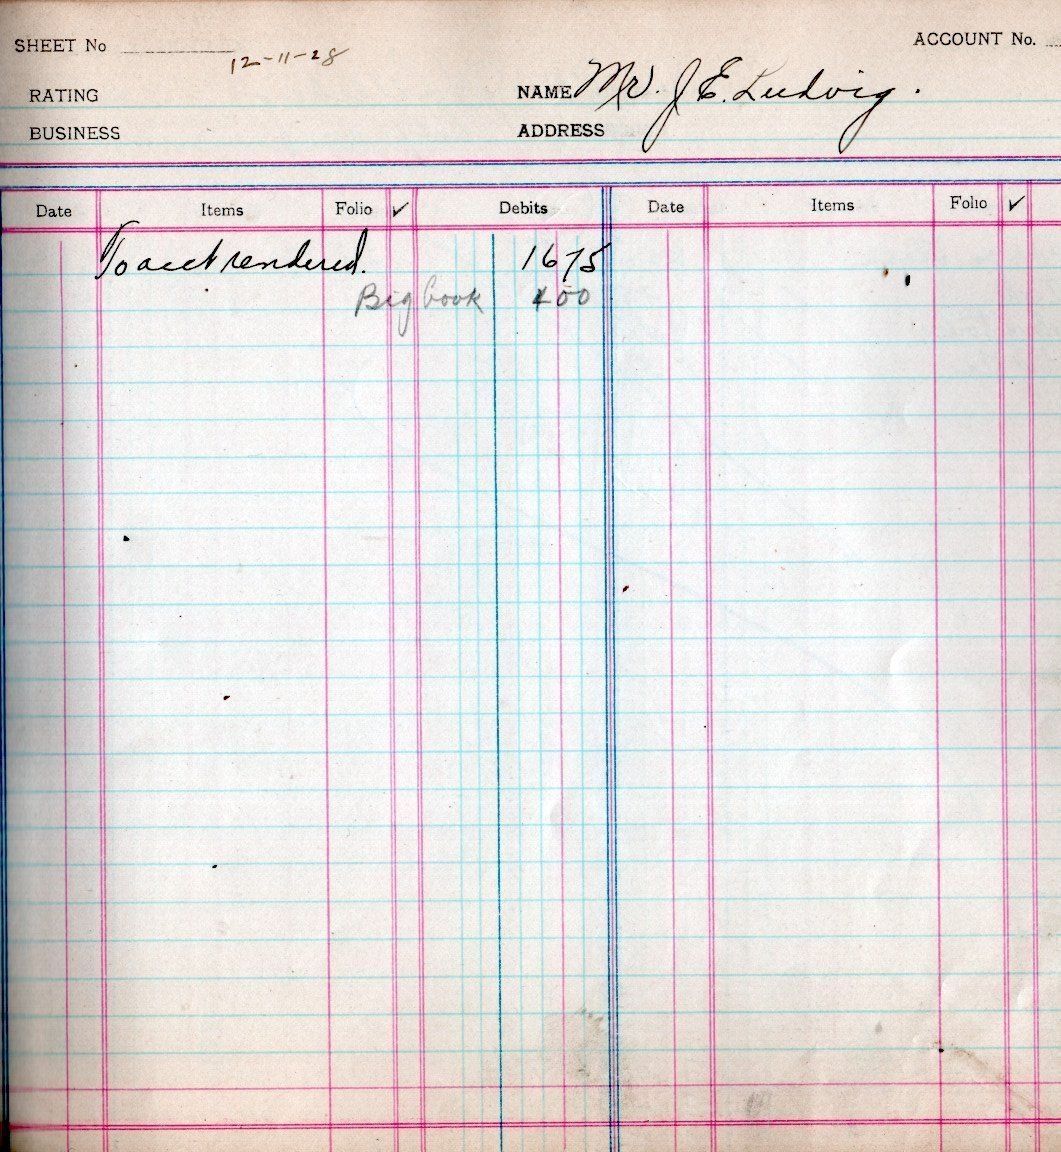 SHEET No ACCOUNT No.
12-11-28
RATING NAME Mr. J E. Ludvig.
BUSINESS ADDRESS
Date Items Folio ✓ Debits Date Items Folio ✓
To acct rendered. 16 75
Big book 4 00